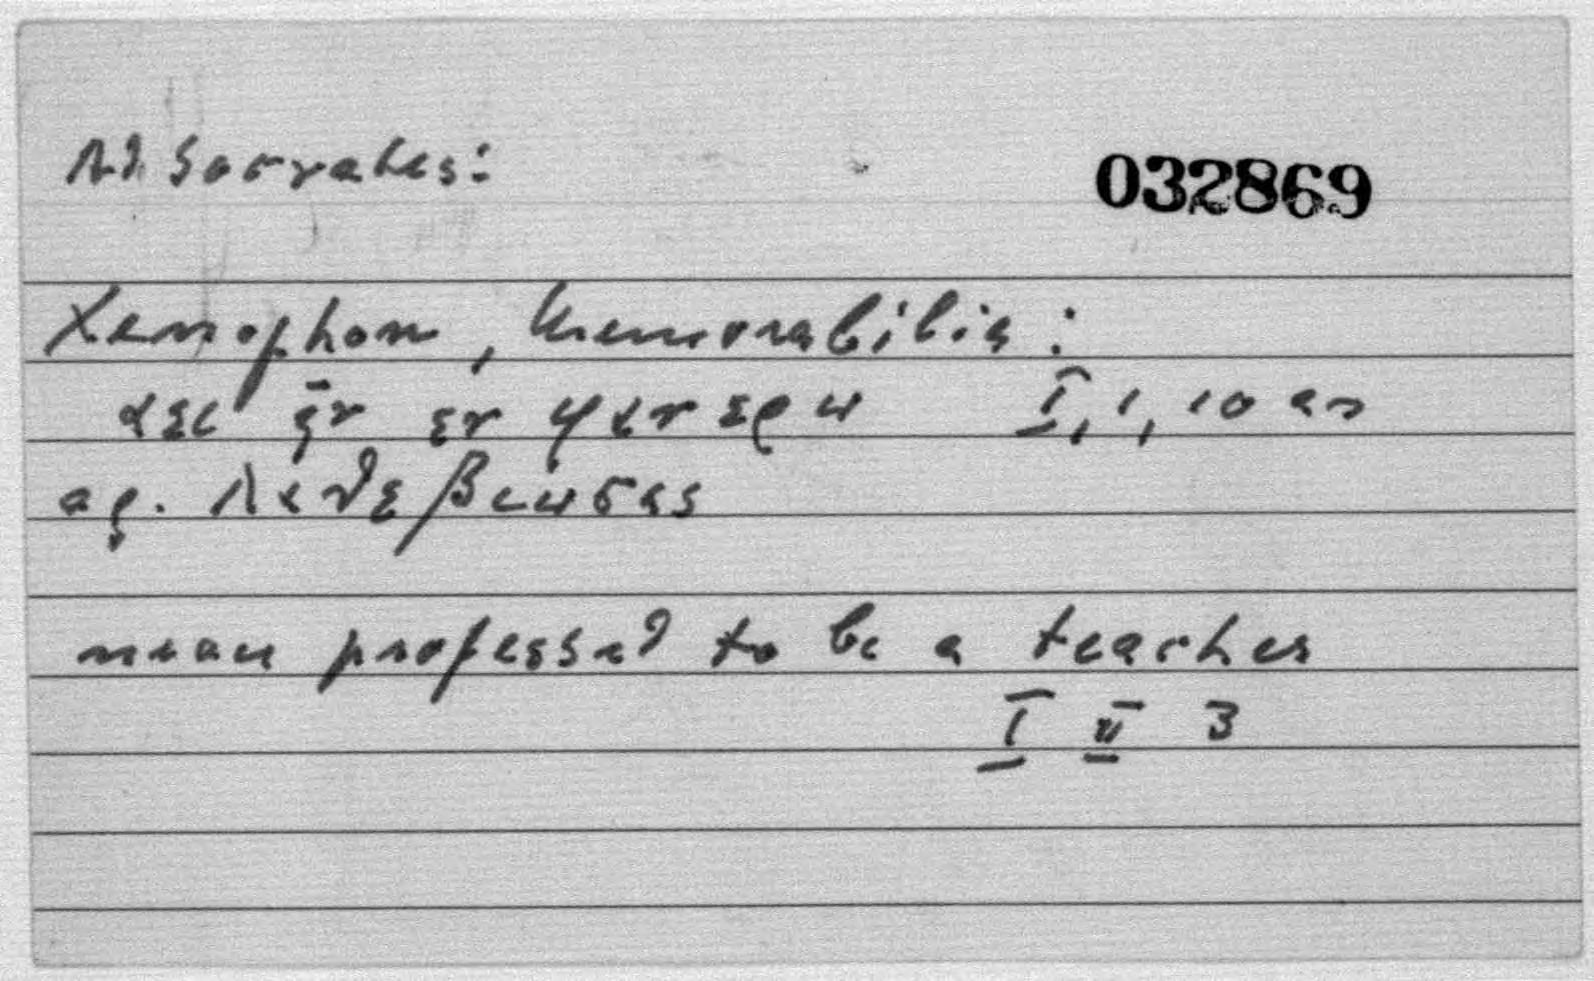 Ad Socrates:
032869
Xenophon, Memorabilia:
αει ην εν φανερω I, 1, 10 as
ag. λαθε βιωσας
never professed to be a teacher
I II 3